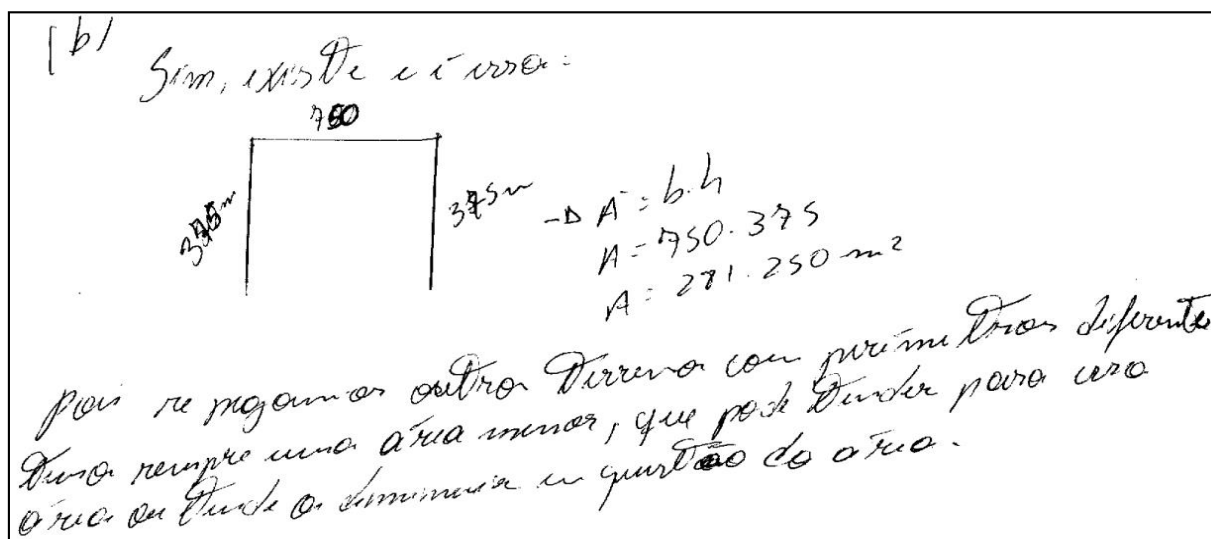 (b)
Sim, existe e é essa:
750
375m
375m
→ A = b.h
A = 750.375
A = 281.250 m²
pois se pegamos outros terrenos com perímetros diferentes
terão sempre uma área menor, que pode tender para uma
área ou tende a diminuir em questão da área.